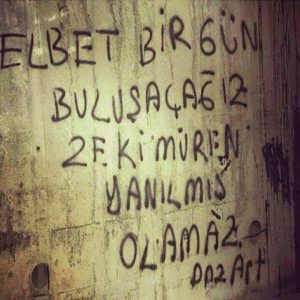 ELBET BİR GÜN
BULUŞAÇAĞIZ
ZEKİ MÜREN
YANILMIŞ
OLAMAZ
DAZ Art